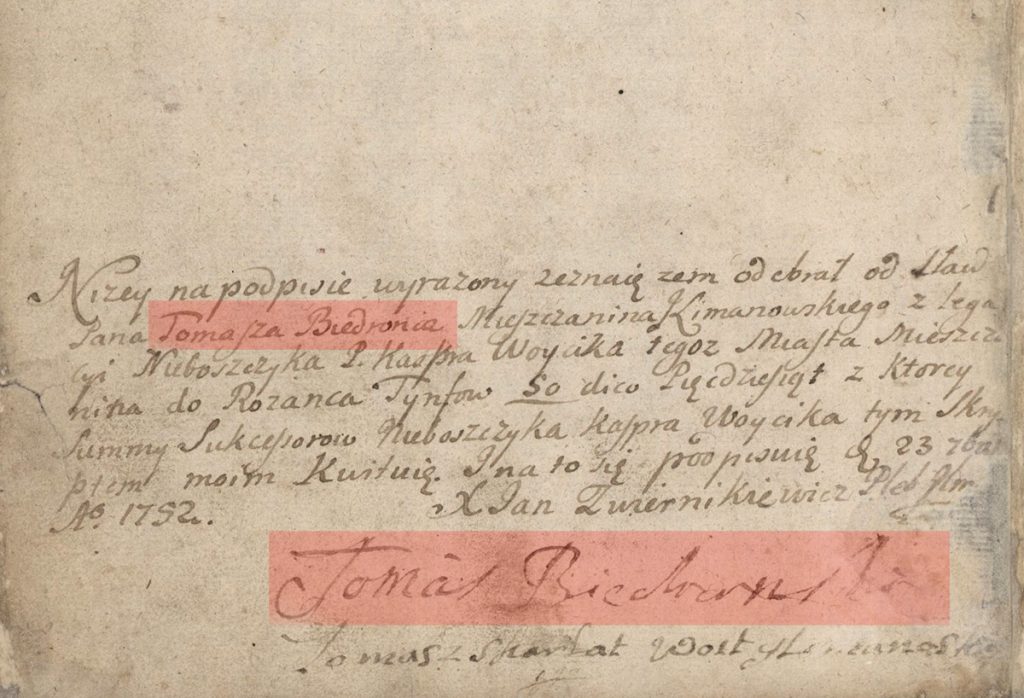 Nizey na podpisie wyrazony zeznaię zem odebrał od Sław
Pana Tomasza Biedronia Mieszczanina Limanowskiego z lega
cyi Nieboszczyka P. Kaspra Woycika tegoz Miasta Mieszcza
nina do Rozanca Tynfow 50 dico Pięcdziesiąt z Ktorey
Summy Sukcessorow Nieboszczyka Kaspra Woycika tym Skry
ptem moim Kwituię. I na to się podpisuię d. 23
Ao. 1752. X Jan Zwiernikiewicz
Tomas Biedronski
Tomasz Skarłat Woit